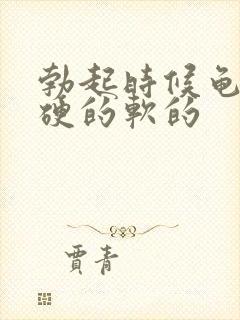 勃起時候龟
硬的軟的
賈青